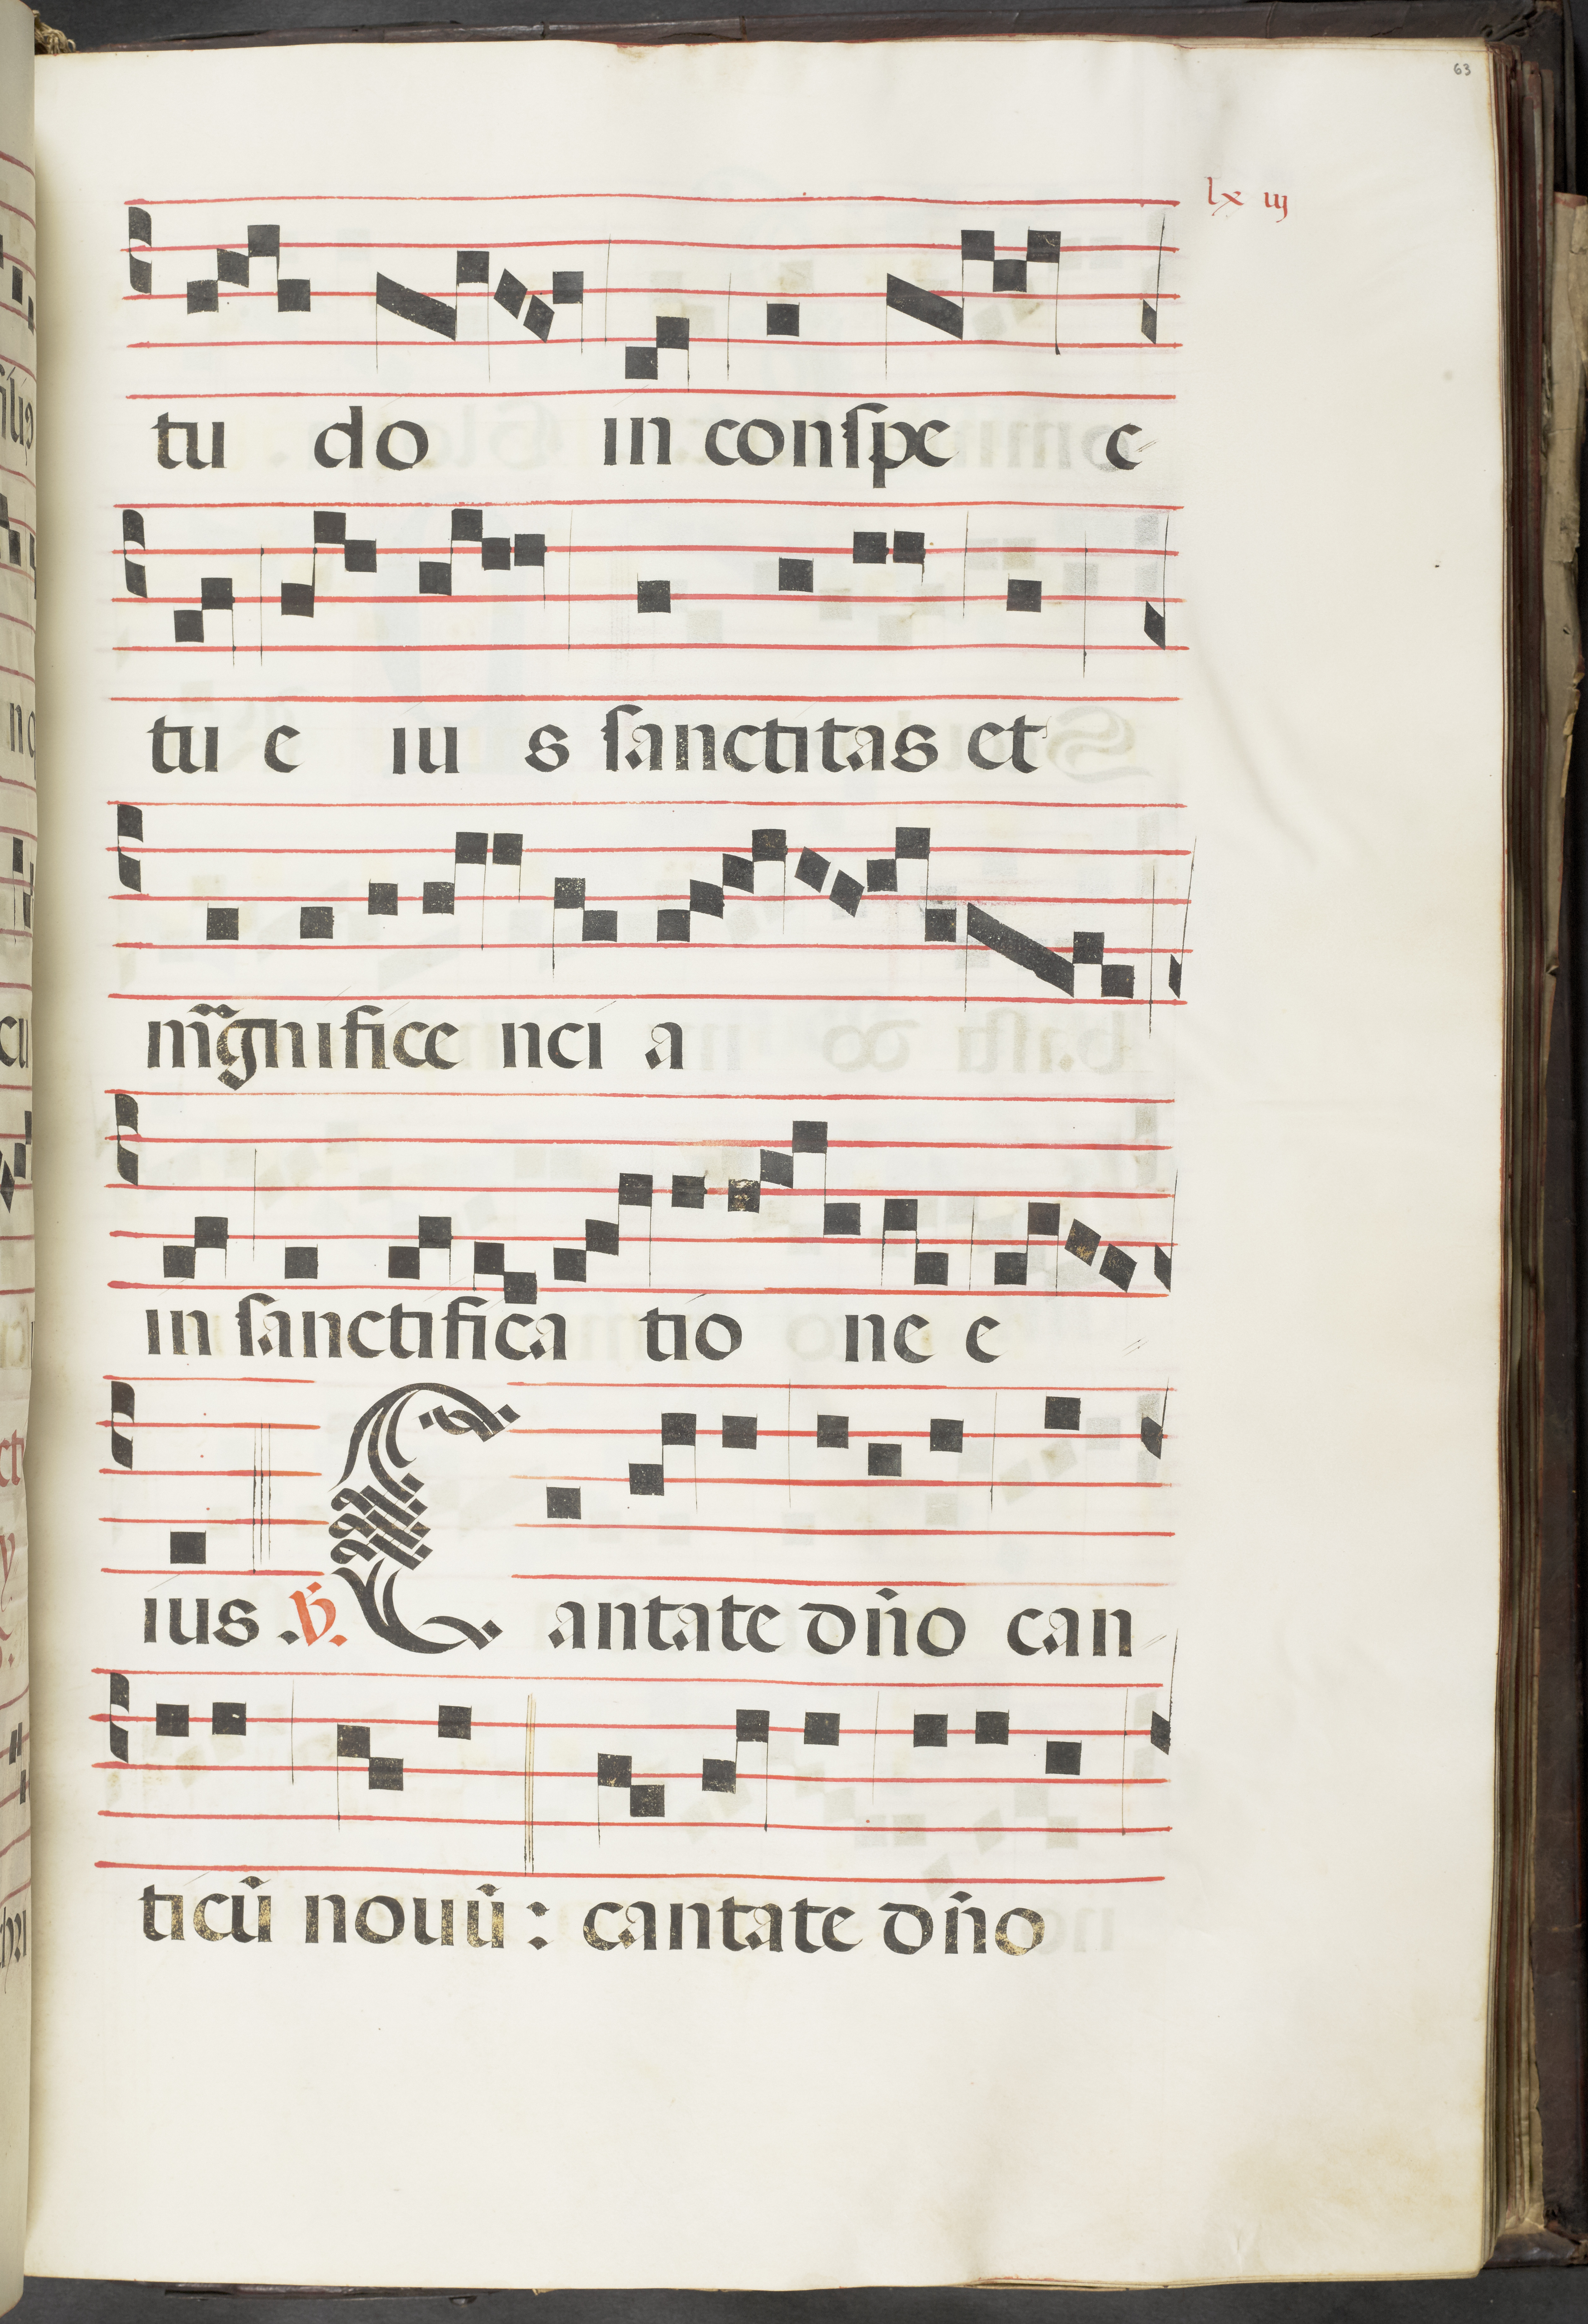 63
lx iij
tu do in conſpe c
tu e iu s ſanctitas et
mãgnifice nci a
in ſanctifica tio ne e
ius . ℣. Cantate dño can
ticũ nouũ : cantate dño